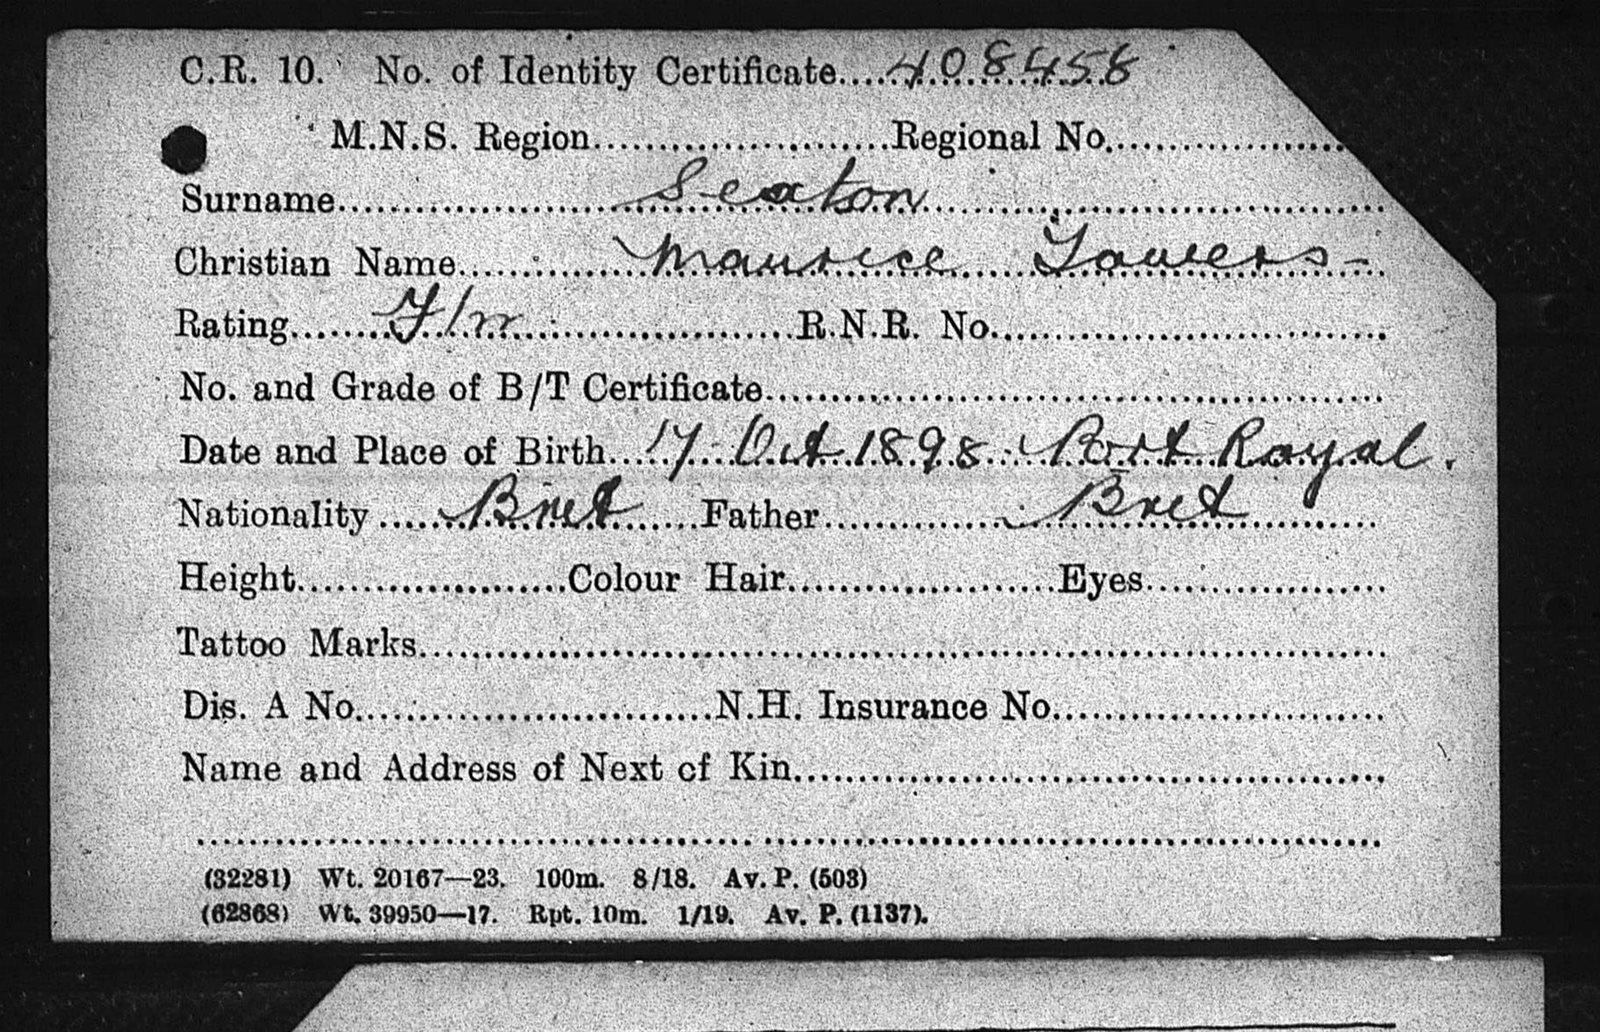 C.R. 10. No. of Identity Certificate.....408458
M.N.S. Region.......................Regional No...................
Surname.......................Seaton...................................
Christian Name..............Maurice Towers-
Rating.......F/m.......................R.N.R. No..............................
No. and Grade of B/T Certificate...............................................
Date and Place of Birth...17 Oct 1898 Port Royal.
Nationality ......Brit.......Father..............Brit..........
Height.....................Colour Hair.....................Eyes...................
Tattoo Marks...........................................................................
Dis. A No............................N.H. Insurance No..........................
Name and Address of Next of Kin..............................................
............................................................................................
(32281) Wt. 20167—23. 100m. 8/18. Av. P. (503)
(62868) Wt. 39950—17. Rpt. 10m. 1/19. Av. P. (1137).